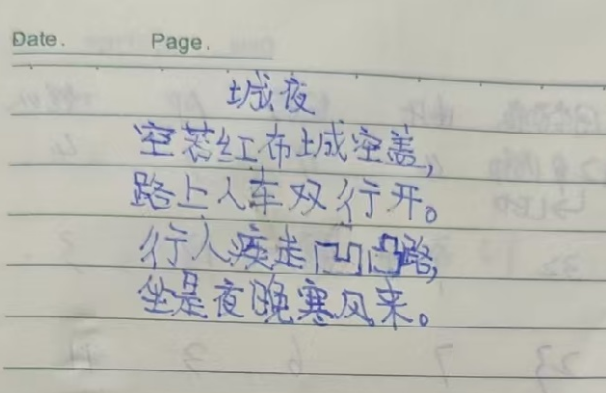 Date. Page.
城夜
空若红布城空盖,
路上人车双行开。
行人疾走凹凸路,
坐是夜晚寒风来。